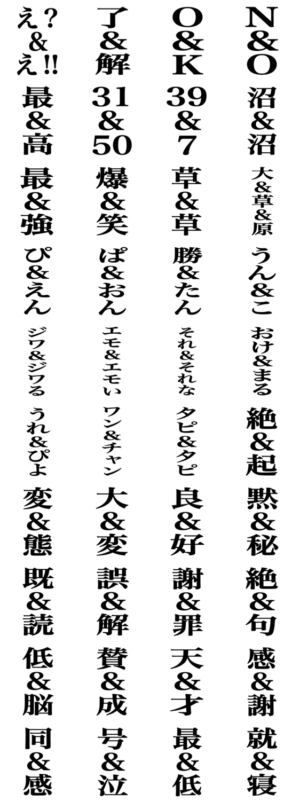 え?&え!!
了&解
O&K
N&O
最&高
31&50
39&7
沼&沼
最&強
爆&笑
草&草
大&草&原
ぴ&えん
ぱ&おん
勝&たん
うん&こ
ジワ&ジワる
エモ&エモい
それ&それな
おけ&まる
うれ&ぴよ
ワン&チャン
タピ&タピ
絶&起
変&態
大&変
良&好
黙&秘
既&読
誤&解
謝&罪
絶&句
低&脳
賛&成
天&才
感&謝
同&感
号&泣
最&低
就&寝